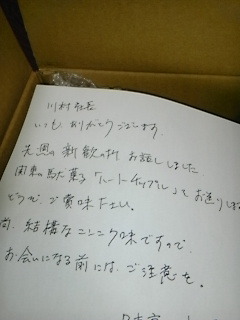 川村社長
いつも ありがとうございます。
先週の新歓の折 お話ししました
関東の駄菓子「ハートチップル」をお送りしま
どうぞ、ご賞味下さい。
尚、結構なニンニク味ですので、
お会いになる前には、ご注意を。